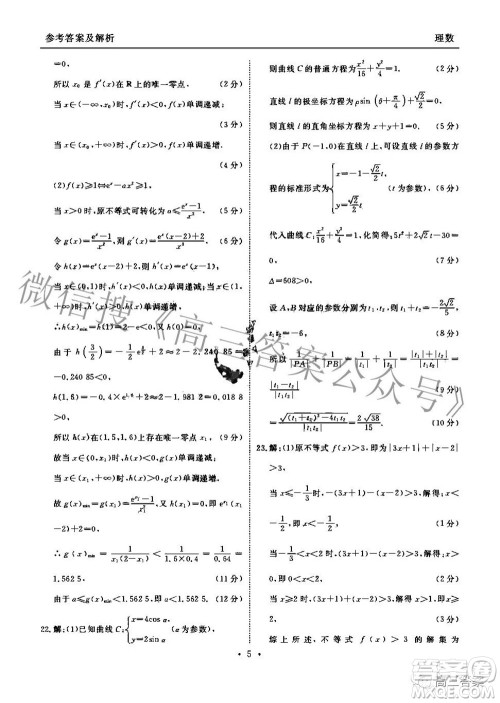 参考答案及解析
理数
=0,
所以 x₀ 是 f'(x)在 R 上的唯一零点. (2 分)
当 x∈(-∞,x₀)时,f'(x)<0,f(x)单调递减;
(3 分)
当 x∈(x₀,+∞)时,f'(x)>0,f(x)单调递增.
(4 分)
(2)f(x)≥1⇔eˣ-ax²≥1.
当 x>0 时,原不等式可转化为 a≤(eˣ-1)/x².
令 g(x)=(eˣ-1)/x²,则 g'(x)=(eˣ(x-2)+2)/x³.
令 h(x)=eˣ(x-2)+2,则 h'(x)=eˣ(x-1).
当 x∈(0,1)时,h'(x)<0,h(x)单调递减;
当 x∈(1,+∞)时,h'(x)>0,h(x)单调递增.
∴h(x)min=h(1)=-e+2<0. (7 分)
又 x→0 时,h(x)→0. (8 分)
由于 h(3/2)=-1/2 e^(3/2)+2≈-2.240 85+2
=-0.240 85<0,
h(1.6)=-0.4×e^1.6+2≈-1.981 2+2=0.018 8
>0,
所以 h(x)在(1.5,1.6)上存在唯一零点 x₁, (9 分)
当 x∈(0,x₁)时,g'(x)<0,g(x)单调递减;
当 x∈(x₁,+∞)时,g'(x)>0,g(x)单调递增.
故 g(x)min=g(x₁)=(e^x₁-1)/x₁²,又 h(x₁)=e^x₁(x₁
-2)+2=0. (10 分)
∴ g(x)min=1/(x₁(2-x₁))>1/(1.6×0.4)=1/0.64=
1.562 5. (11 分)
由于 a≤g(x)min,故 a≤1.562 5,a∈(-∞,1.562 5]. (12 分)
22.解:(1)已知曲线 C:{x=4cosα,y=2sinα (α 为参数),
则曲线 C 的普通方程为 x²/16+y²/4=1. (2 分)
直线 l 的极坐标方程为 ρsin(θ+π/4)+√2/2=0,
则直线 l 的直角坐标方程为 x+y+1=0. (5 分)
(2)由于 P(-1,0)在直线 l 上,可设直线 l 的参数方
程的标准形式为{x=-1-√2/2 t,y=√2/2 t (t 为参数), (6 分)
代入曲线 C:x²/16+y²/4=1,化简得:5t²+2√2t-30=
0,
Δ=608>0.
设 A,B 对应的参数分别为 t₁,t₂,则 t₁+t₂=-2√2/5,
t₁t₂=-6, (8 分)
所以 |1/|PA|-1/|PB||=|1/|t₁|-1/|t₂||=|t₁+t₂|/|t₁t₂|
(10 分)
23.解:(1)原不等式 f(x)>3,即为|3x+1|+|x-2|
>3,
当 x≤-1/3 时,-(3x+1)-(x-2)>3,
即 x<-1/2; (2 分)
当-1/3<x<2 时,(3x+1)-(x-2)>3,
即 x>0,即 0<x<2; (3 分)
当 x≥2 时,(3x+1)+(x-2)>3,
即 x>1,即 x≥2. (4 分)
综上所述,不等式 f(x)>3 的解集为
· 5 ·
微信搜《高三答案公众号》
答案圈
高三答案
MXQE.COM